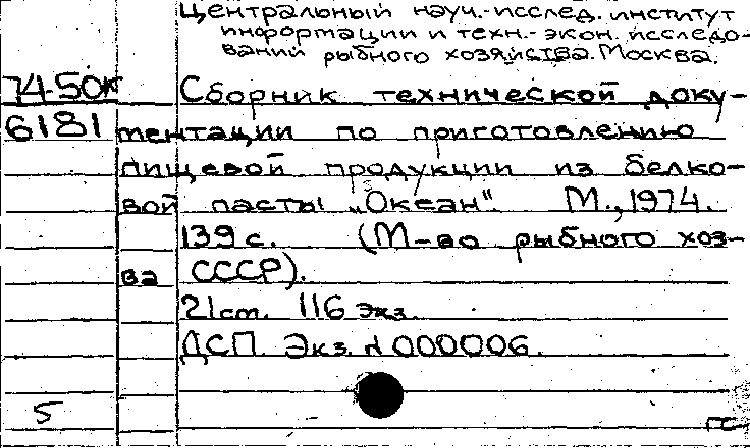 Центральный науч.-исслед. институт
информации и техн.-экон. исследо-
ваний рыбного хозяйства. Москва.
74-50к Сборник технической доку-
6181 ментации по приготовлению
пищевой продукции из белко-
вой пасты „Океан". М., 1974.
139 с. (М-во рыбного хоз-
ва СССР).
21 cm. 116 экз.
ДСП. Экз. № 000006.
5 ГС